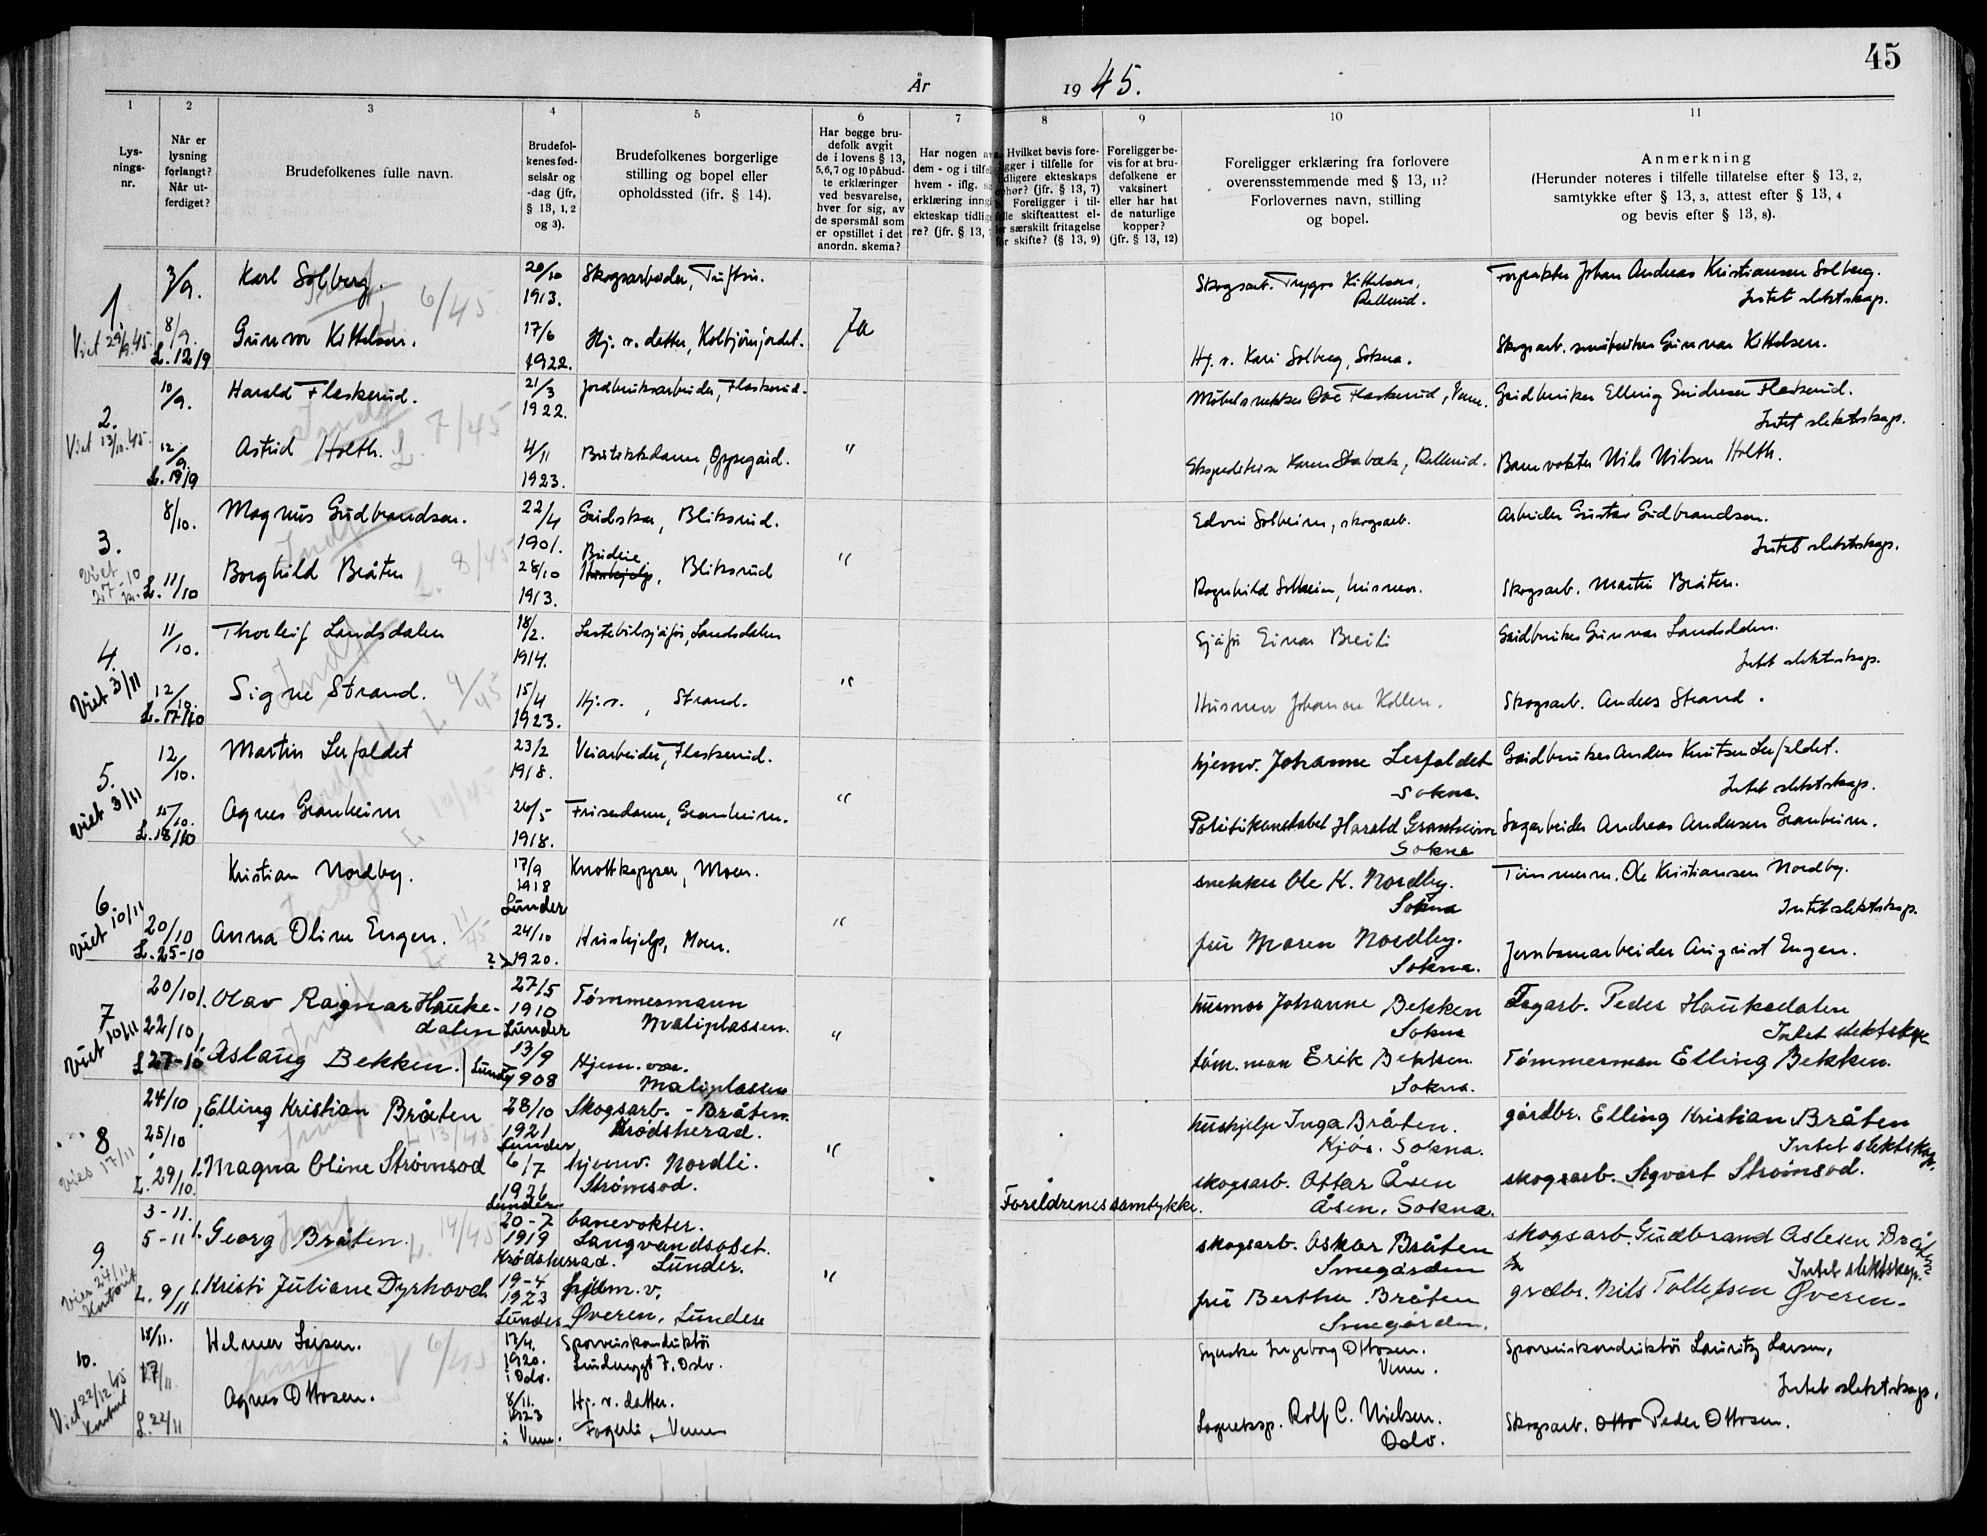 45
År 1945.
1 2 3 4 5 6 7 8 9 10 11
Lys-
nings-
nr.
Når er
lysning
forlangt?
Når ut-
ferdiget?
Brudefolkenes fulle navn.
Brudefol-
kenes fød-
selsår og
-dag (jfr,
§ 13, 1, 2
og 3).
Brudefolkenes borgerlige
stilling og bopel eller
opholdssted (ifr. § 14).
Har begge bru-
defolk avgit
de i lovens § 13,
5,6,7 og 10 påbud-
te erklæringer
ved besvarelse,
hver for sig, av
de spørsmål som
er opstillet i det
anordn. skema?
Har nogen av
dem - og i tilfe
hvem - iflg. s
erklæring inng
ekteskap tidlig
re? (jfr. § 13,
Hvilket bevis fore-
ligger i tilfelle for
tidligere ekteskaps
ophør? (jfr. § 13, 7)
Foreligger i til-
felle skifteattest el-
ler særskilt fritagelse
for skifte? (§ 13, 9)
Foreligger be-
vis for at bru-
defolkene er
vaksinert
eller har hat
de naturlige
kopper?
(jfr. § 13, 12)
Foreligger erklæring fra forlovere
overensstemmende med § 13, 11?
Forlovernes navn, stilling
og bopel.
Anmerkning
(Herunder noteres i tilfelle tillatelse efter § 13, 2,
samtykke efter § 13, 3, attest efter § 13, 4
og bevis efter § 13, 8).
1 3/9. Karl Solberg. 20/10 1913. Skogsarbeider, Skogsarb. Trygve Kittelsen, Johan Andreas Kristiansen Solberg.
L. 6/45 Intet slektskap.
Viet 29/9.45. 8/9. L. 12/9 Gunvor Kittelsen. 17/6 1922. Hj. v. datter, Kolbjørnjordet. Ja Hj. v. Kari Solberg, Sokna. Skogsarb. småbruker Gunnar Kittelsen.
2. 10/9. Harald Flaskerud. 21/3 1922. Jordbruksarbeider, Flaskerud. Møbelsnekker Ove Flaskerud, Veme. Gårdbruker Elling Flaskerud.
L. 7/45 Intet slektskap.
Viet 13/10.45. 12/9. L. 19/9 Astrid Holth. 4/11 1923. Butikkdame, Oppegård. " Karen Stabæk, Rallerud. Banevokter Nils Nilsen Holth.
3. 8/10. Magnus Gudbrandsen. 22/4 1901. Blikrud. Edvin Solheim, skogsarb. Arbeider Gustav Gudbrandsen.
L. 8/45 Intet slektskap.
Viet 27-10 L. 11/10 Borghild Bråten 28/10 1913. Budeie, Blikrud " Ragnhild Solheim, husmor. Skogsarb. Martin Bråten.
4. 11/10. Thorleif Landsdalen 18/2. 1914. Lastebilsjåfør, Landsdalen Sjåfør Einar Breili Gårdbruker Gunnar Landsdalen.
L. 9/45 Intet slektskap.
Viet 3/11 12/10. L. 17/10 Signe Strand. 15/4 1923. Hj. v., Strand. " Husmor Johanne Kollen. Skogsarb. Anders Strand.
5. 12/10. Martin Lerfaldet 23/2 1918. Veiarbeider, Flaskerud. hjemv. Johanne Lerfaldet Gårdbruker Anders Knutsen Lerfaldet.
L. 10/45 Sokna. Intet slektskap.
Viet 3/11 15/10. L. 18/10 Agnes Granheim 26/5 1918. Friserdame, Granheim. " Politikonstabel Harald Granheim Sagarbeider Andreas Andersen Granheim.
Sokna
6. Kristian Nordby. 17/9 1918 Lunder Knottkapper, Moen. snekker Ole K. Nordby. Tømmerm. Ole Kristiansen Nordby.
L. 11/45 Sokna Intet slektskap.
Viet 10/11 20/10 L. 25-10 Anna Oline Engen. 24/10 1920. Hushjelp, Moen. " fru Maren Nordby. Jernbanearbeider August Engen.
Sokna.
7 20/10 Olav Ragnar Hauke- 27/5 1910 Tømmermann husmor Johanne Bekken Sagarb. Peder Haukedalen
22/10 dalen Lunder Maliplassen. " Sokna Intet slektskap
Viet 10/11 L 27-10 Aslaug Bekken. Lunder 13/9 1908 Hjem. vær. tøm. man Erik Bekken Tømmerman Elling Bekken.
Maliplassen Sokna.
8 24/10 Elling Kristian Bråten 28/10 1921 Skogsarb. - Bråten. hushjelp Inga Bråten. gårdbr. Elling Kristian Bråten
25/10 L 13/45 Lunder Krødsherad. " Kjøs. Sokna. Intet slektskap.
vies 17/11 L. 29/10. Magna Oline Strømsod 6/7 1926 hjemv. Nordli. skogsarb. Ottar Åsen skogsarb. Sigvart Strømsod.
Lunder Strømsod. Foreldrenes samtykke. Åsen, Sokna.
9. 3-11. 5-11 Georg Bråten. 20-7 1919 banevokter. skogsarb. Oskar Bråten skogsarb. Gudbrand Aslesen Bråten
L. 14/45 Krødsherad. Langvandsoset. Lunder. Smegården Intet slektskap.
Vies 24/11 Kontoret L. 9/11 Kristi Juliane Dyrhovd 19-4 1923 hjem. v. " fru Bertha Bråten grdbr. Nils Tollefsen Øveren.
Lunder Øveren, Lunder Smegården.
10. 15/11. Helmer Larsen. 17/4. 1920. i Oslo. Sporveiskonduktør Ingeborg Ottosen. Sporveiskonduktør Lauritz Larsen,
17/11 6/45 7. Oslo. Veme. Intet slektskap.
Viet 22/12 45 Kontoret L. 22/11 Agnes Ottosen. 8/11. 1923 i Veme. Hj. v. datter. Rolf C. Nielsen. Skogsarb. Peder Ottosen.
Fagerli, Veme Oslo.